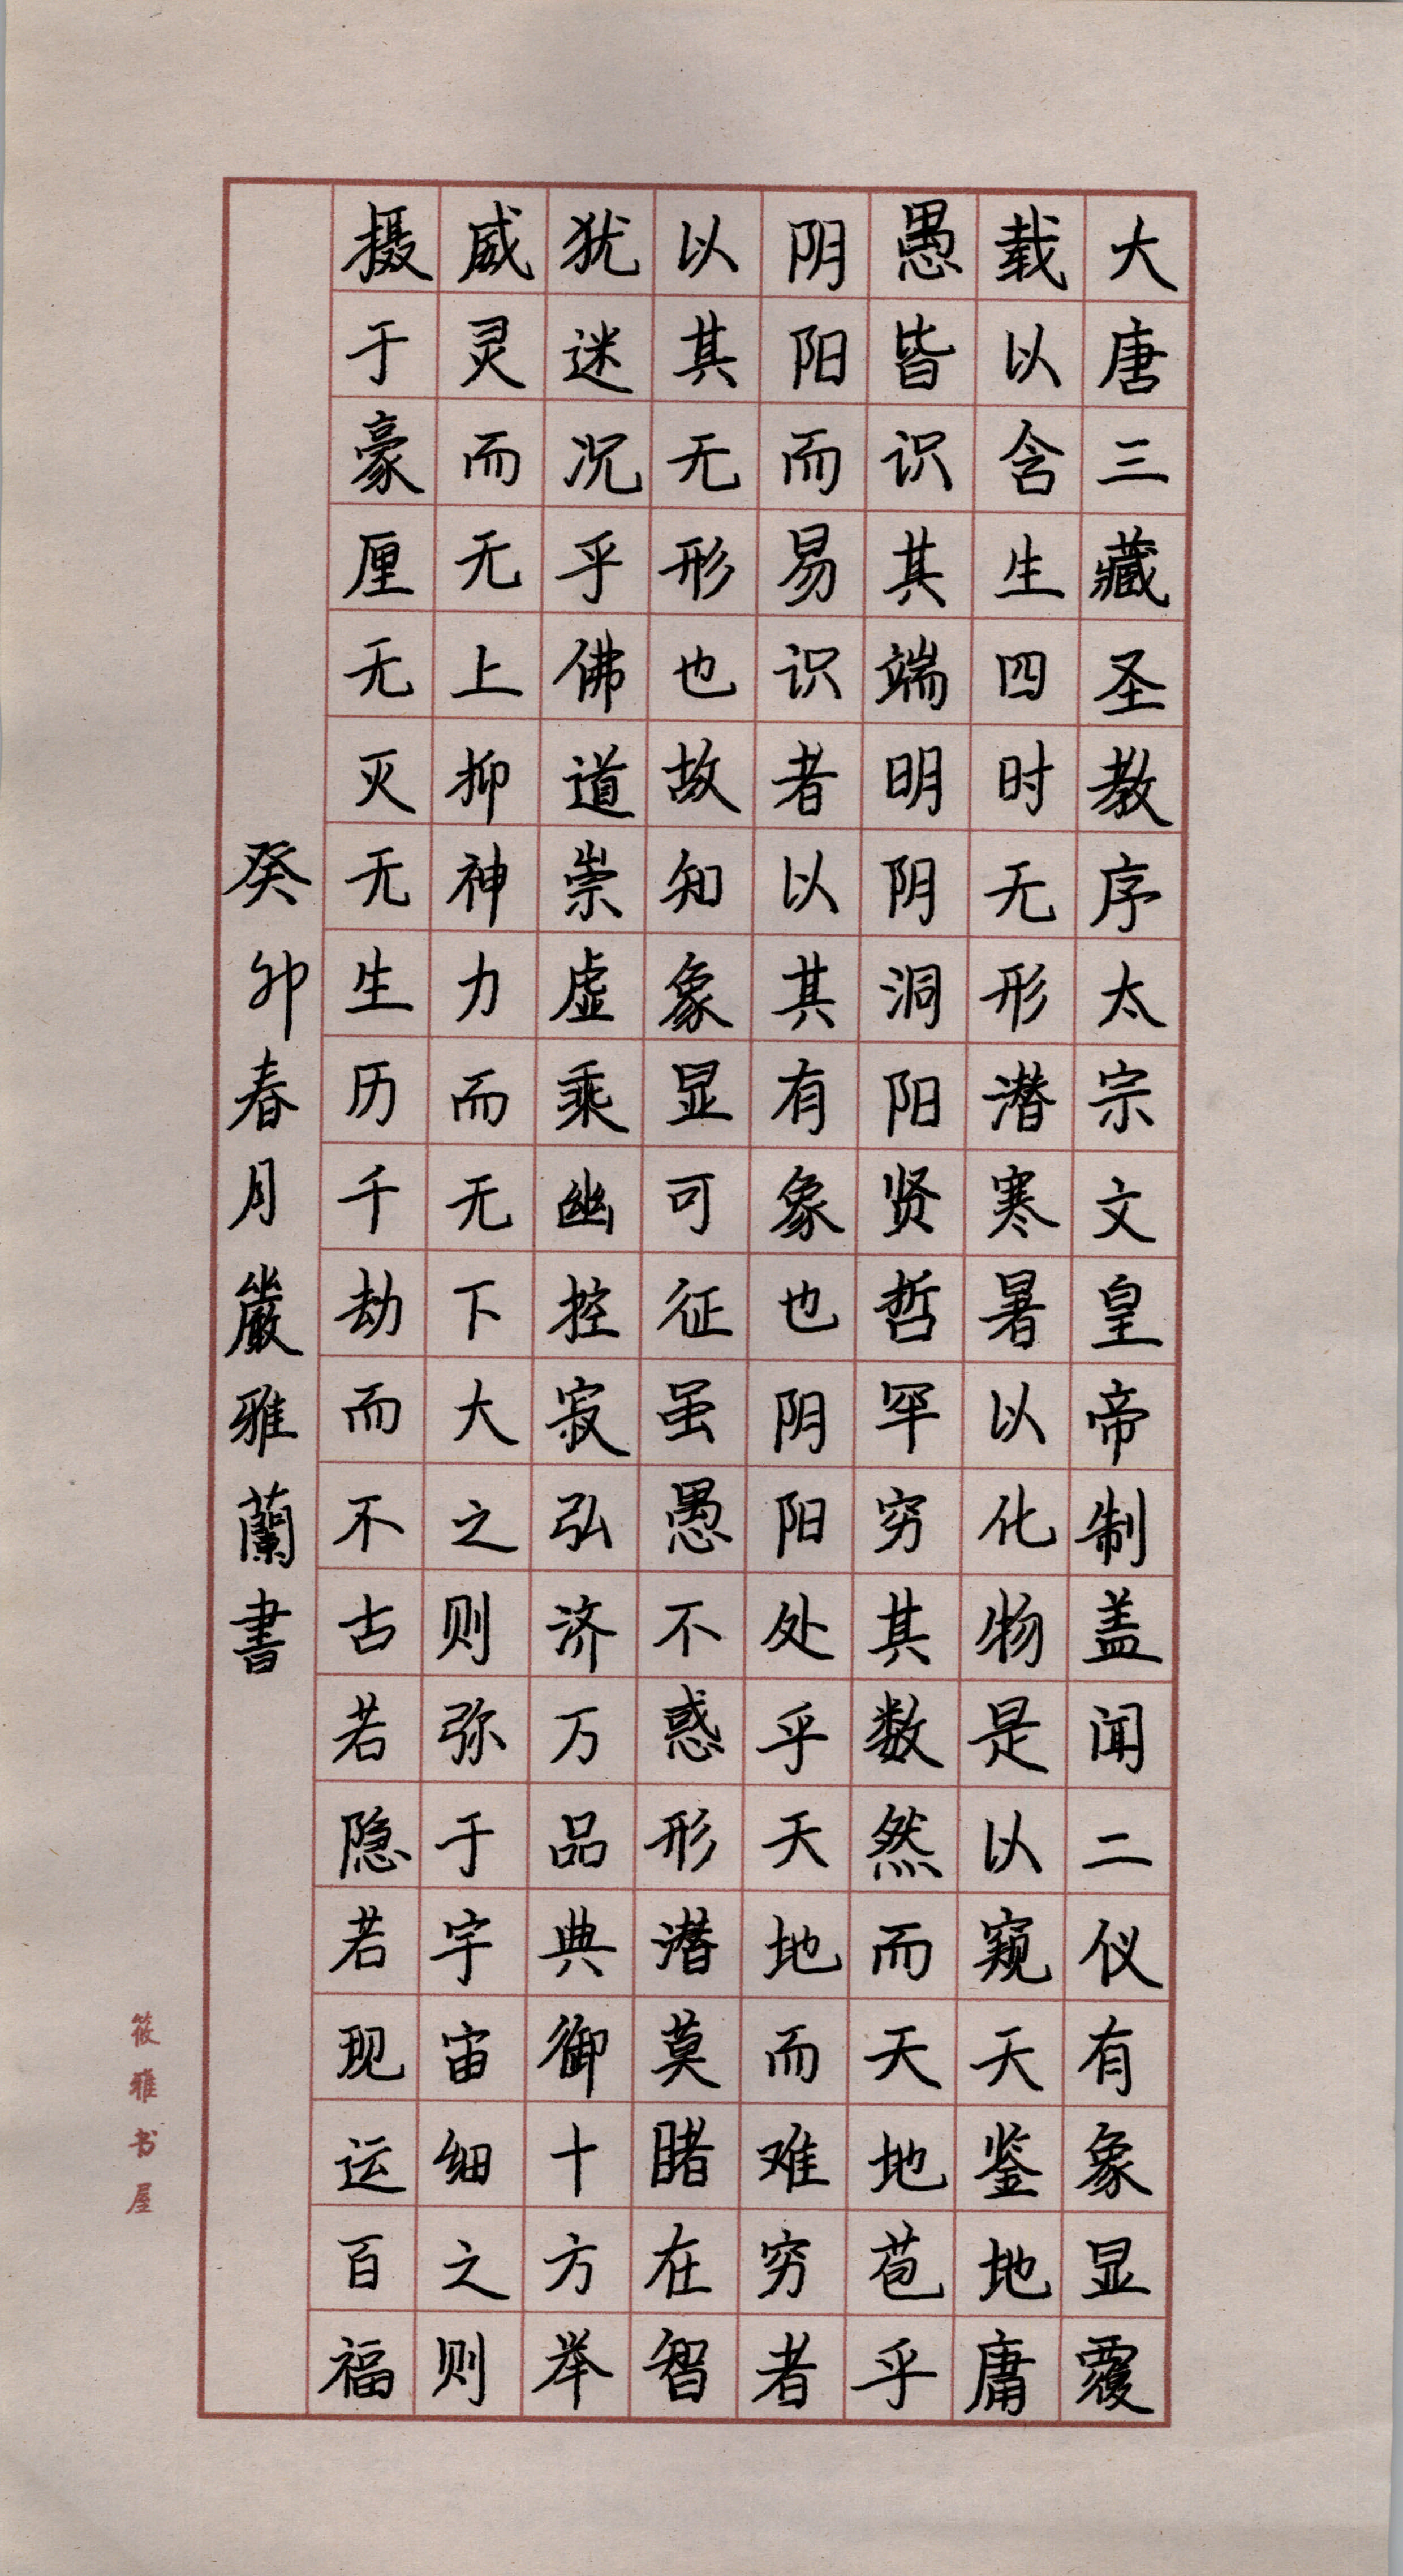 大唐三藏圣教序太宗文皇帝制盖闻二仪有象显覆
载以含生四时无形潜寒暑以化物是以窥天鉴地庸
愚皆识其端明阴洞阳贤哲罕穷其数然而天地苞乎
阴阳而易识者以其有象也阴阳处乎天地而难穷者
以其无形也故知象显可征虽愚不惑形潜莫睹在智
犹迷况乎佛道崇虚乘幽控寂弘济万品典御十方举
威灵而无上抑神力而无下大之则弥于宇宙细之则
摄于豪厘无灭无生历千劫而不古若隐若现运百福
癸卯春月嚴雅蘭書
筱雅书屋